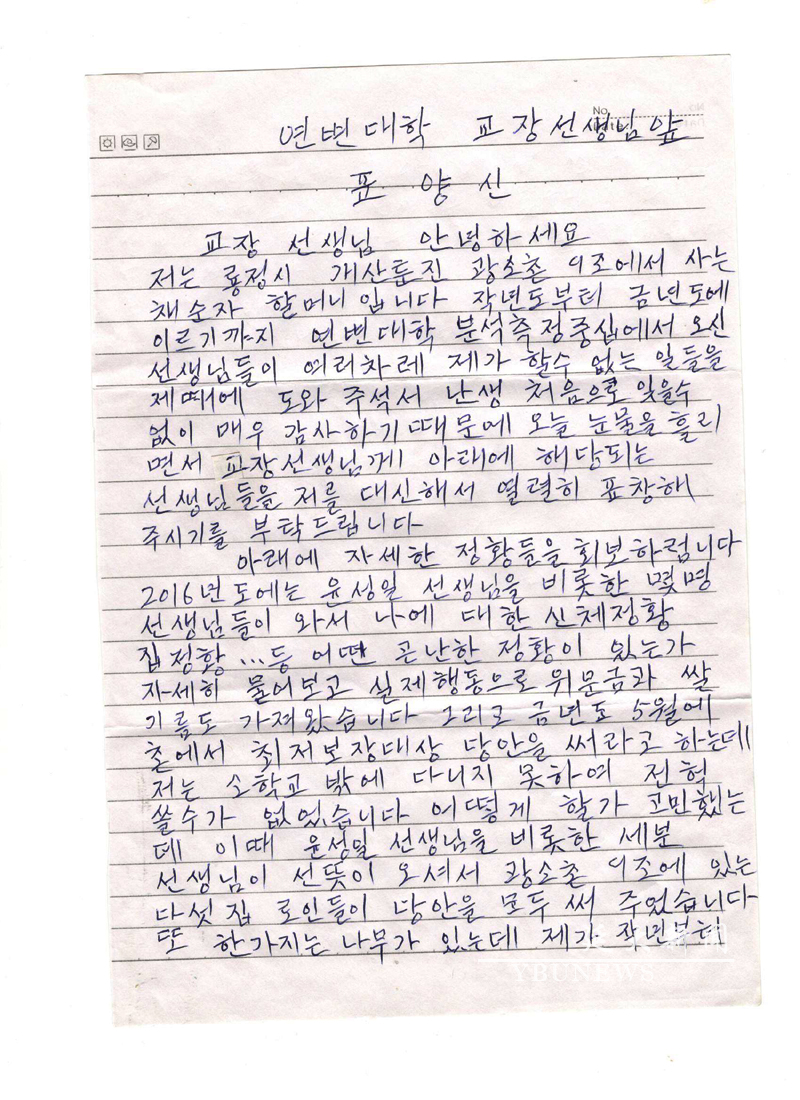 No.
연변대학 교장선생님앞
표양신
교장 선생님 안녕하세요
저는 룡정시 개산툰진 광소촌 9조에서 사는
채순자 할머니입니다 작년도부터 금년도에
이르기까지 연변대학 분석측정중심에서 오신
선생님들이 여러차례 제가 할수 없는 일들을
제때에 도와 주석서 난생 처음으로 잊을수
없이 매우 감사하기때문에 오늘 눈물을 흘리
면서 교장선생님께 아래에 해당되는
선생님들을 저를 대신해서 열렬히 표창해
주시기를 부탁드립니다
아래에 자세한 정황들을 회보하렵니다
2016년도에는 윤성일 선생님을 비롯한 몇명
선생님들이 와서 나에 대한 신체정황
집정황...등 어떤 곤난한 정황이 있는가
자세히 물어보고 실제행동으로 위문금과 쌀
기름도 가져왔습니다 그리고 금년도 5월에
촌에서 최저보장대상 당안을 써라고 하는데
저는 소학교 밖에 다니지 못하여 전혀
쓸수가 없었습니다 어떻게 할가 고민했는
데 이때 윤성일 선생님을 비롯한 세분
선생님이 선뜻이 오셔서 광소촌 9조에 있는
다섯집 로인들이 당안을 모두 써 주었습니다
또 한가지는 나무가 있는데 제가 작년부터
YBUNEWS